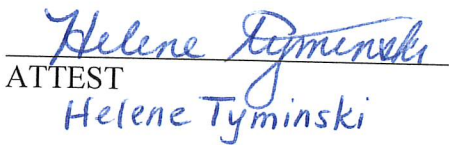 Helene Tyminski
ATTEST
Helene Tyminski